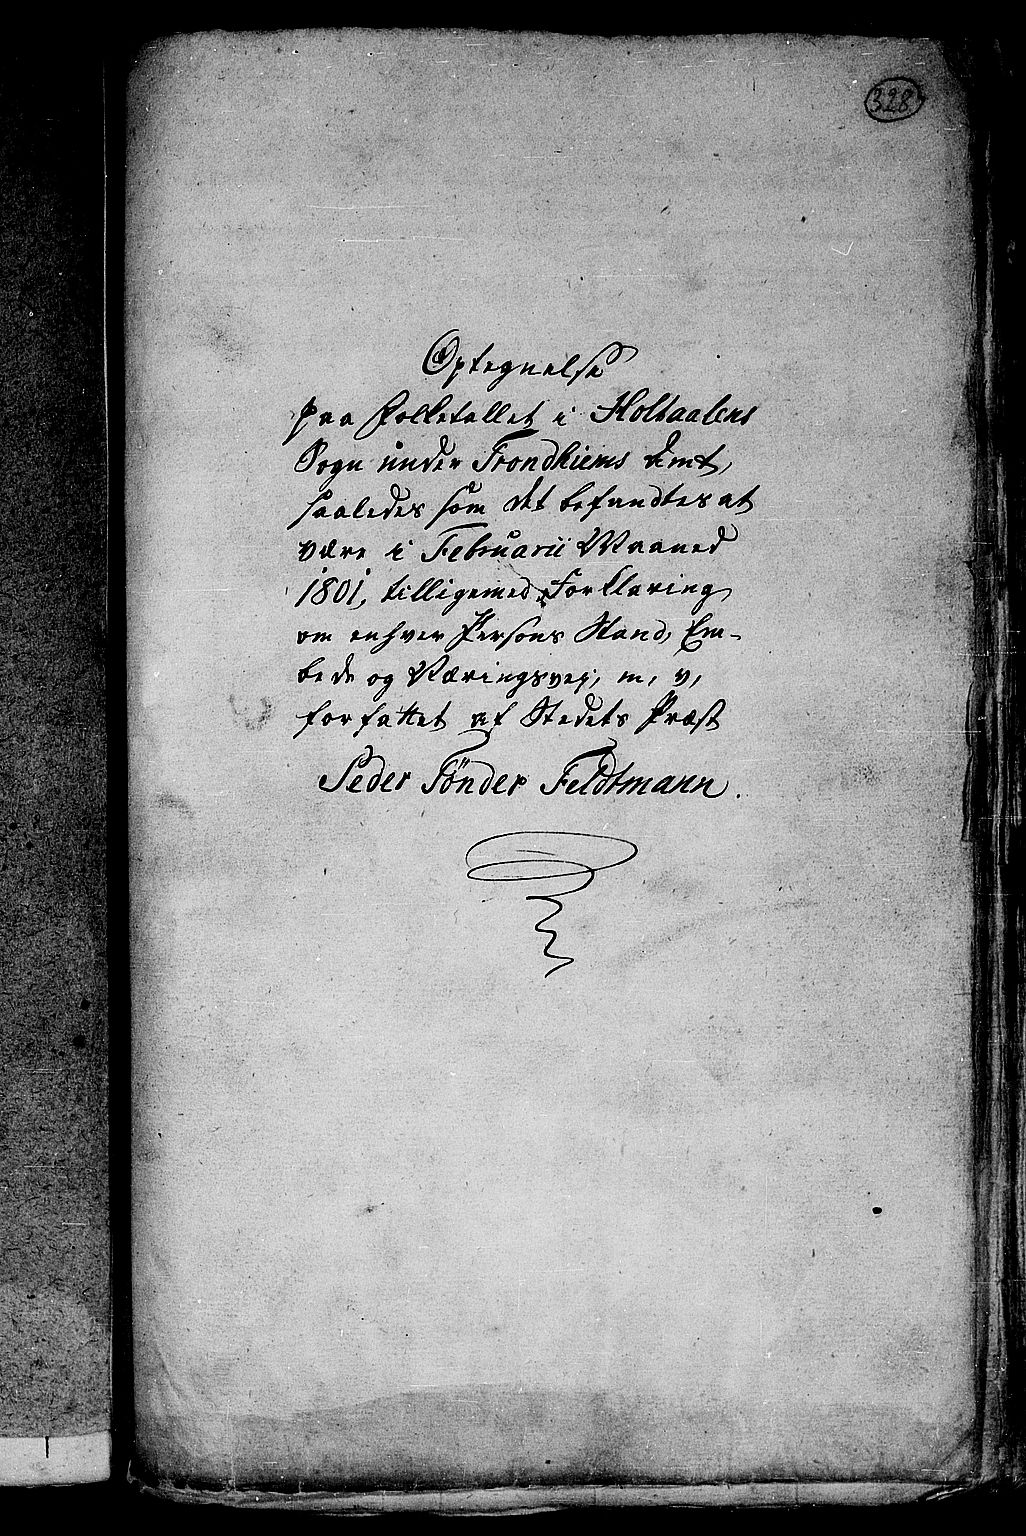 328
Optegnelse
paa Folketallet i Holtaalens
Sogn under Trondhiems Amt,
saaledes som det befandtes at
være i Februarii Maaned
1801, tilligemed Forklaring
om enhver Persons Stand, Em-
bede og Næringsvej, m, v,
forfattet af Stedets Præst
Peder Tönder Feldtmann.